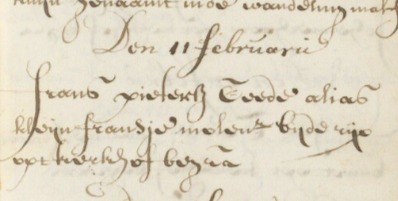 genaamt in de wandeling
Den 11 februarii
frans pietersz Teede alias
kleijn fransje molenr bijde rijp
opt kerckhof begra